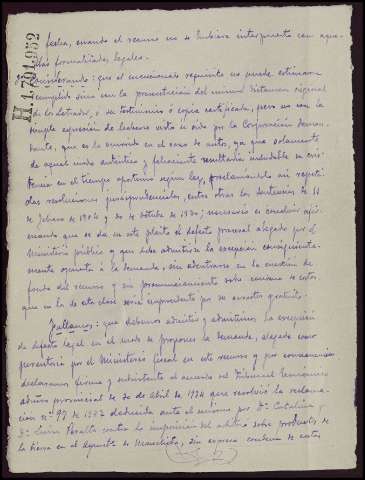 H.1.701.952
fecha, cuando el recurso no se hubiera interpuesto con aque-
llas formalidades legales.
Considerando: que el mencionado requisito no puede estimarse
cumplido sino con la presentación del mismo dictamen original
de los letrados, o su testimonio ó copia certificada, pero no con la
simple expresión de haberse visto u oido por la Corporación deman-
dante, que es lo ocurrido en el caso de autos, ya que solamente
de aquel modo auténtico y fehaciente resultaría indudable su exis-
tencia en el tiempo oportuno según ley, proclamándolo así repeti-
das resoluciones jurisprudenciales, entre otras las sentencias de 11
de febrero de 1904 y de de octubre de 1930; necesario es concluir afir-
mando que se da en este pleito el defecto procesal alegado por el
Ministerio público y que debe admitirse la excepción consiguiente-
mente opuesta a la demanda, sin adentrarse en la cuestión de
fondo del recurso y sin pronunciamiento sobre condena de costas
que en los de esta clase sería improcedente por su carácter gratuito.
Fallamos: que debemos admitir y admitimos la excepción
de defecto legal en el modo de proponer la demanda, alegada como
perentoria por el Ministerio fiscal en este recurso y por consecuencia
declaramos firme y subsistente el acuerdo del Tribunal Económico
administrativo provincial de 30 de Abril de 1934 que resolvió la reclama-
ción nº 97 de 1933 deducida ante el mismo por Dª Catalina y
Dª Luisa Peralta contra la imposición del arbitrio sobre productos de
la tierra en el Ayuntº de, sin expresa condena de costas